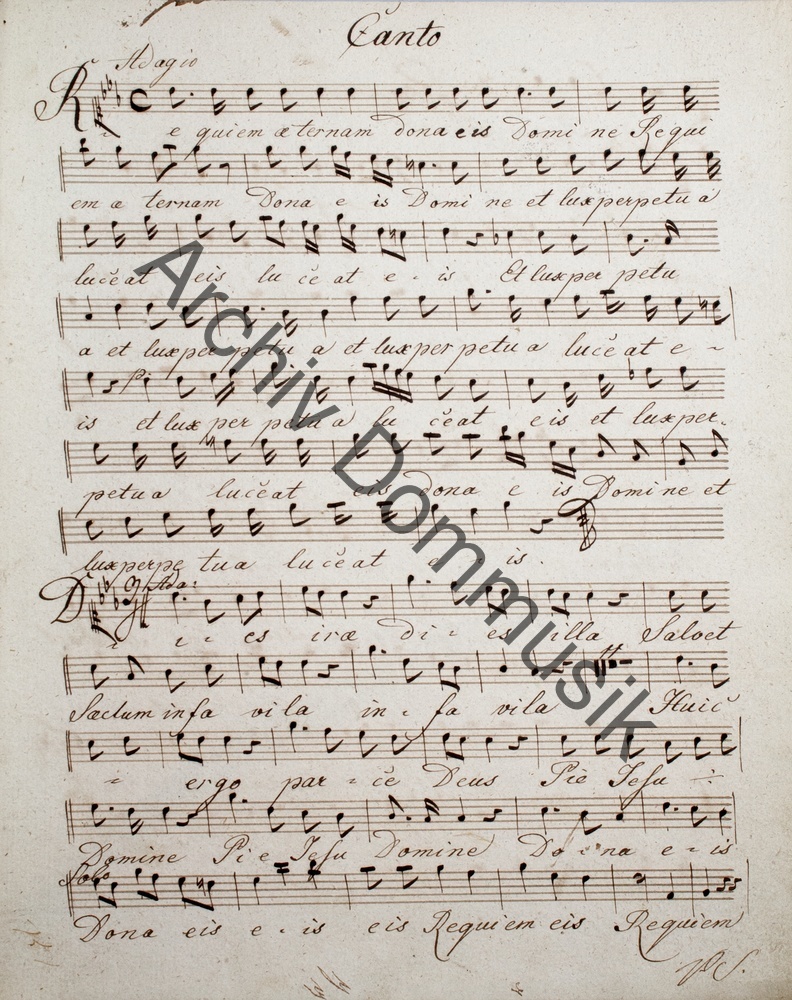 Canto
Adagio
R e quiem æternam dona eis Domi ne Requi
em æ ternam Dona e is Domi ne et lux perpetu a
lučeat eis lu če at e - is Et lux per petu
a et lux per petu a et lux per petu a lučeat e -
is et lux per petu a lu čeat e is et lux per-
petua lučeat eis dona e is Domine et
lux perpe tua lučeat e - is.
D i - es iræ di - es illa Salvet
Sæclum in fa vila in - fa vila Huič
ergo par - če Deus Pie Iesu
Domine Pie Iesu Domine Do - na e - is
Solo
Dona eis e - is eis Requiem eis Requiem
VS.
Archiv Dommusik